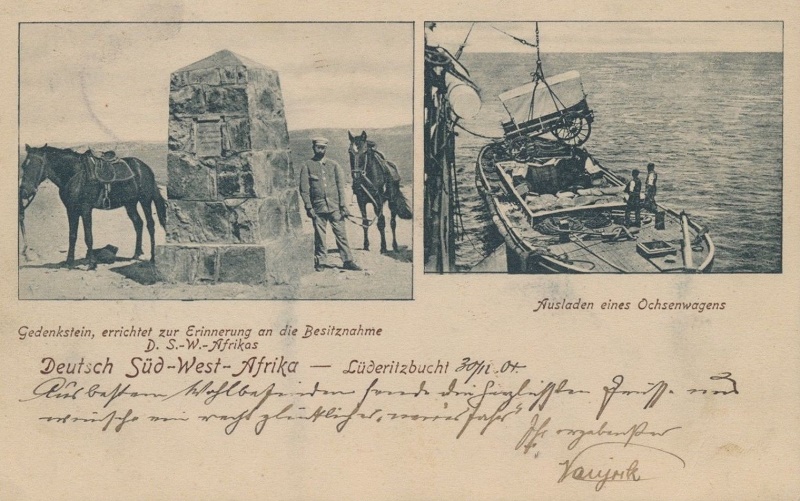 Gedenkstein, errichtet zur Erinnerung an die Besitznahme
D. S.-W.-Afrikas
Ausladen eines Ochsenwagens
Deutsch Süd-West-Afrika — Lüderitzbucht 30/11. 04
Aus bestem Wohlbefinden sende die herzlichsten Grüsse und
wünsche ein recht glückliches, neues Jahr"
Ihr ergebenster